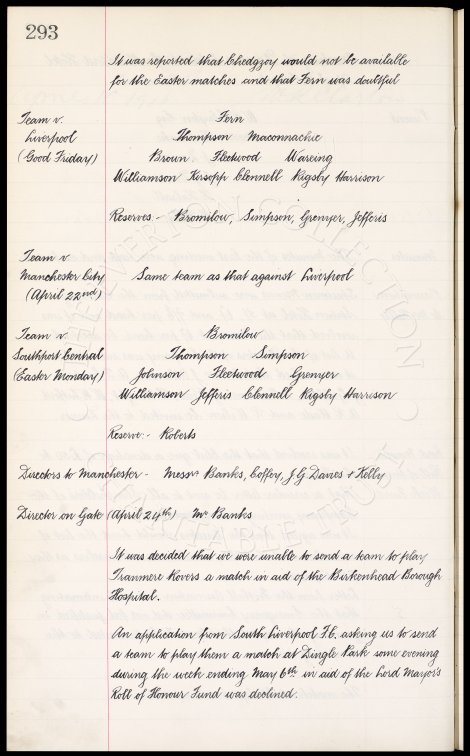 293
It was reported that Chedgzoy would not be available
for the Easter matches and that Fern was doubtful
Team v.
Liverpool
(Good Friday)
Fern
Thompson Maconnachie
Brown Fleetwood Wareing
Williamson Kirsopp Clennell Rigsby Harrison
Reserves - Bromilow, Simpson, Grenyer, Jefferis
Team v
Manchester City
(April 22nd)
Same team as that against Liverpool
Team v.
Southport Central
(Easter Monday)
Bromilow
Thompson Simpson
Johnson Fleetwood Grenyer
Williamson Jefferis Clennell Rigsby Harrison
Reserve:- Roberts
Directors to Manchester - Messrs Banks, Coffey, J.G. Davies + Kelly
Director on Gate (April 24th) Mr Banks
It was decided that we were unable to send a team to play
Tranmere Rovers a match in aid of the Birkenhead Borough
Hospital.
An application from South Liverpool F.C. asking us to send
a team to play them a match at Dingle Park some evening
during the week ending May 6th in aid of the Lord Mayor's
Roll of Honour Fund was declined.
EVERTON COLLECTION CHARITABLE TRUST